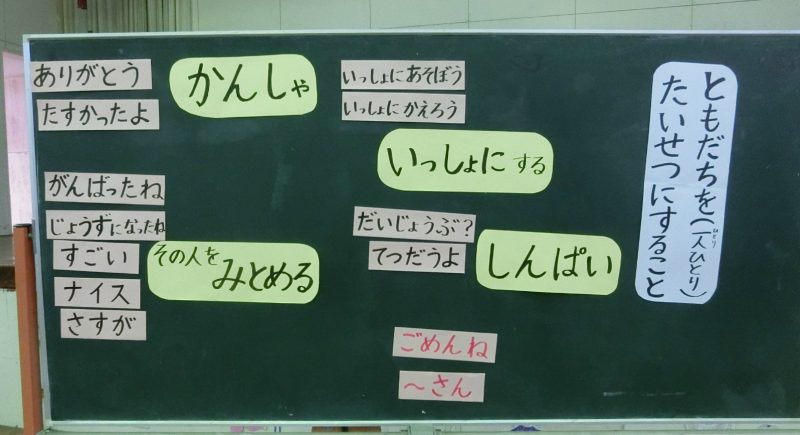 ともだちを(一人ひとり)
ひとり
たいせつにすること
いっしょにあそぼう
いっしょにかえろう
いっしょにする
だいじょうぶ?
てつだうよ
しんぱい
ごめんね
～さん
ありがとう
たすかったよ
かんしゃ
がんばったね
じょうずになったね
すごい
ナイス
さすが
その人を
みとめる